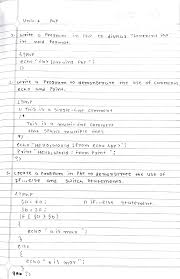 Unit-1 PHP
1. Write a Program in PHP to display "Learning PHP" in bold format.
<?php
echo "<b> Learning PHP";
?>
2. Write a Program to demonstrate the use of comments echo and Print.
<?php
// This is a single-line comment
/*
This is a multi-line comment
that spans multiple lines
*/
echo "Hello World! from echo <br>";
Print "Hello World! from Print";
?>
3. Create a Program in PHP to demonstrate the use of if...else and switch statements.
<?php
$a = 60; // If...else statement
$b = 20;
if ( $a > $b )
{
echo " a is max";
}
else
{
echo " b is max";
}